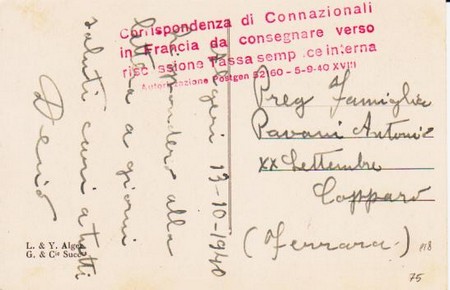 Corrispondenza di Connazionali
in Francia da consegnare verso
riscossione Tassa semplice interna
Autorizzazione Postgen 52760 - 5-9-40 XVIII
Algeri 13-10-1940
Risponderò alla
lettera a giorni
saluti cari a tutti
Denis
Preg Famiglia
Pavani Antonio
XX Settembre
Copparo
(Ferrara)
118
L. & Y. Alger
G. & Cie Succ
75